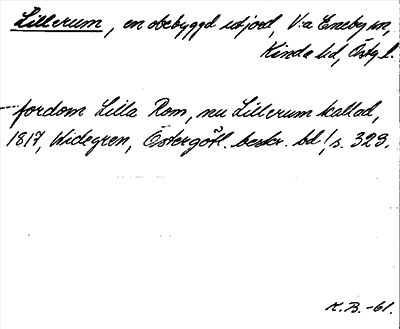 Lillerum, en obebyggd utjord, V:a Eneby sn,
Kinda hd, Östg l.
---fordom Lilla Rom, nu Lillerum kallad,
1817, Widegren, Östergötl. beskr. bd 1, s. 323.
K.B. -61.